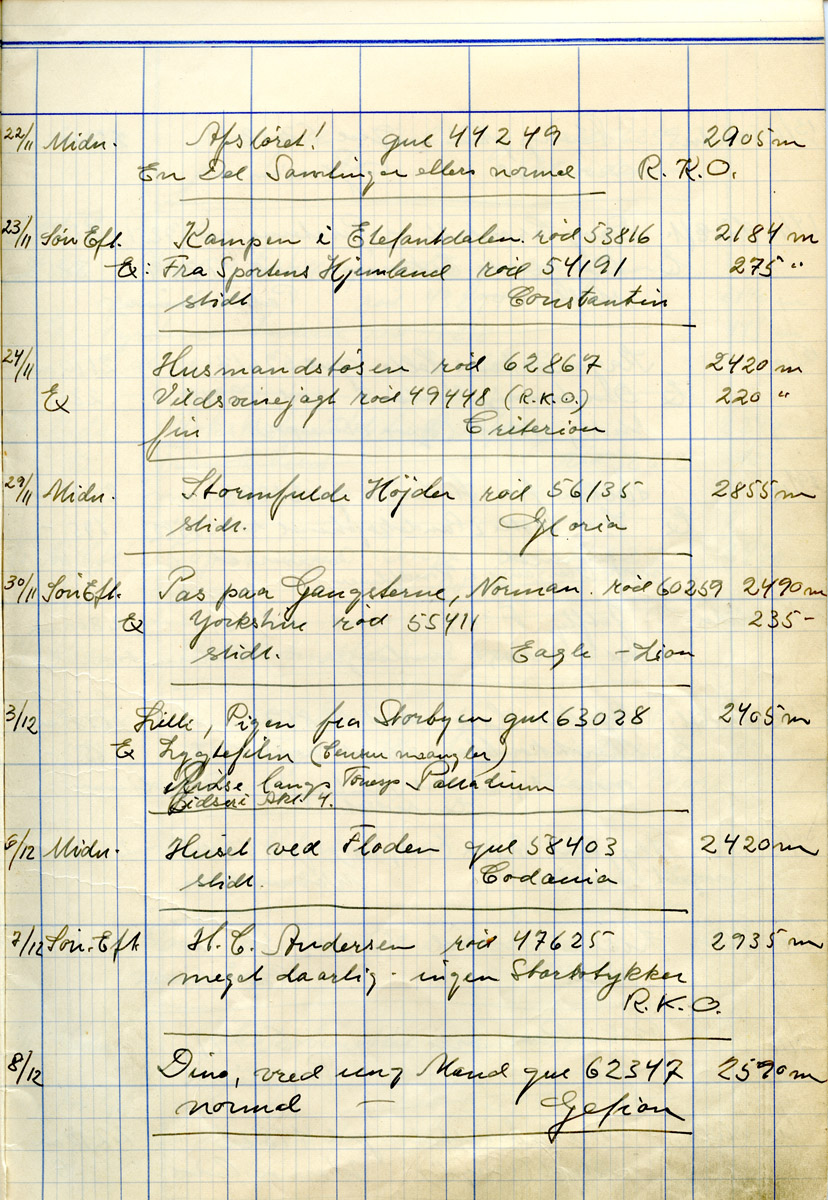 22/11 Midn. Afsløret! gul 44249 2905 m
En Del Samlinger ellers normal R.K.O.
23/11 Søn Eft. Kampen i Elefantdalen. rød 53816 2184 m
Ex: Fra Sportens Hjemland rød 54191 275 "
slidt Constantin
24/11 Husmandstøsen rød 62867 2420 m
Ex Vildsvinejagt rød 49448 (R.K.O.) 220 "
fin Criterion
29/11 Midn. Stormfulde Højder rød 56135 2855 m
slidt. Gloria
30/11 Søn Eft. Pas paa Gangsterne, Norman. rød 60259 2490 m
Ex Yorkshire rød 55411 235 -
slidt. Eagle - Lion
3/12 Lille, Pigen fra Storbyen gul 63028 2405 m
Ex Lygtefilm (Censur mangler)
Ridse langs Palladium
Akt. 4.
6/12 Midn. Huset ved Floden gul 58403 2420 m
slidt. Codania
7/12 Søn. Eft H.C. Andersen rød 47625 2935 m
meget daarlig - ingen Startstykker
R.K.O.
8/12 Dino, vred ung Mand gul 62347 2590 m
normal — Gefion